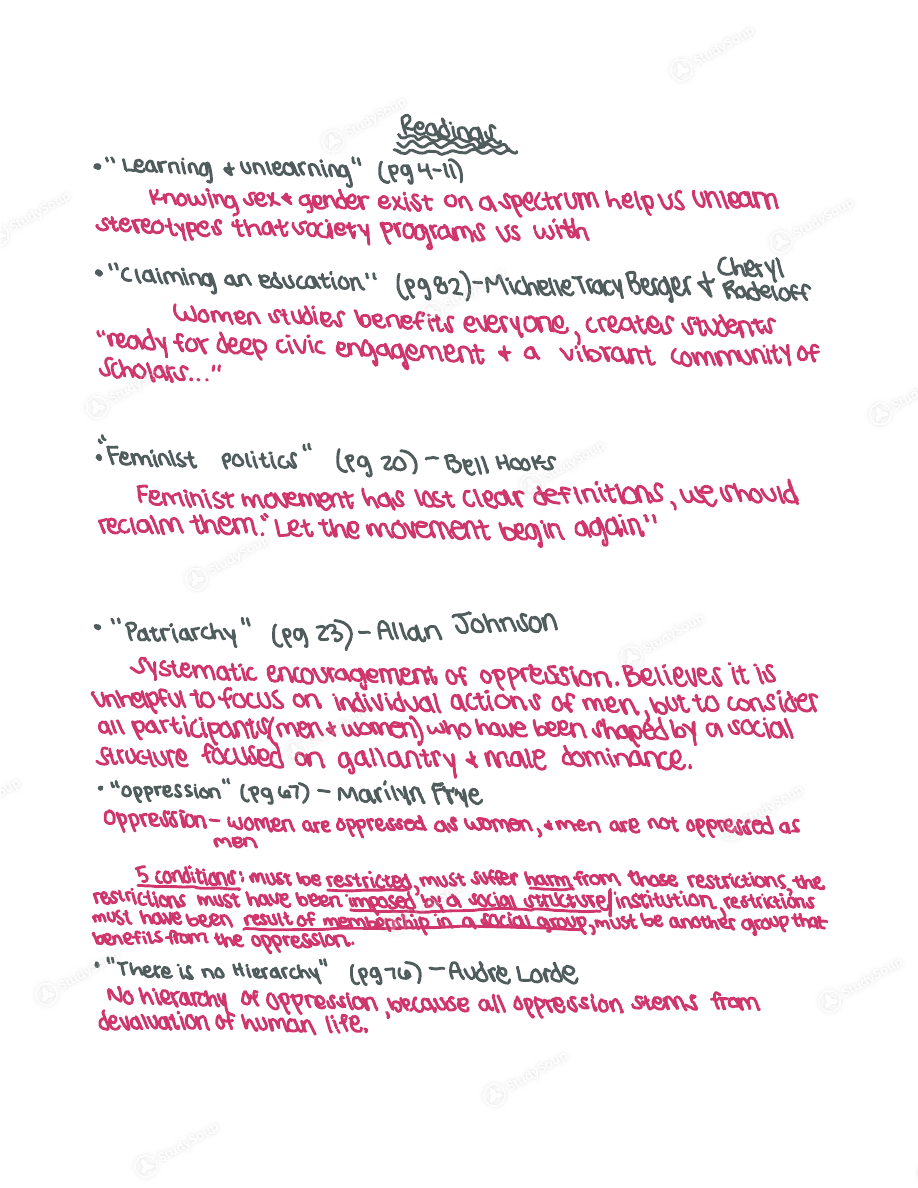 Readings
• "Learning & unlearning" (pg 4-11)
Knowing sex & gender exist on a spectrum help us unlearn
stereotypes that society programs us with
• "Claiming an education" (pg 82) - Michelle Tracy Berger & Cheryl
Radeloff
Women studies benefits everyone, creates students
"ready for deep civic engagement & a vibrant community of
scholars..."
• "Feminist politics" (pg 20) - Bell Hooks
Feminist movement has lost clear definitions, we should
reclaim them. "Let the movement begin again"
• "Patriarchy" (pg 23) - Allan Johnson
Systematic encouragement of oppression. Believes it is
unhelpful to focus on individual actions of men, but to consider
all participants (men & women) who have been shaped by a social
structure focused on gallantry & male dominance.
• "oppression" (pg 67) - Marilyn Frye
Oppression - women are oppressed as women, & men are not oppressed as
men
5 conditions: must be restricted, must suffer harm from those restrictions, the
restrictions must have been imposed by a social structure/institution, restrictions
must have been result of membership in a social group, must be another group that
benefits from the oppression.
• "There is no Hierarchy" (pg 76) - Audre Lorde
No hierarchy of oppression, because all oppression stems from
devaluation of human life.
StudySoup